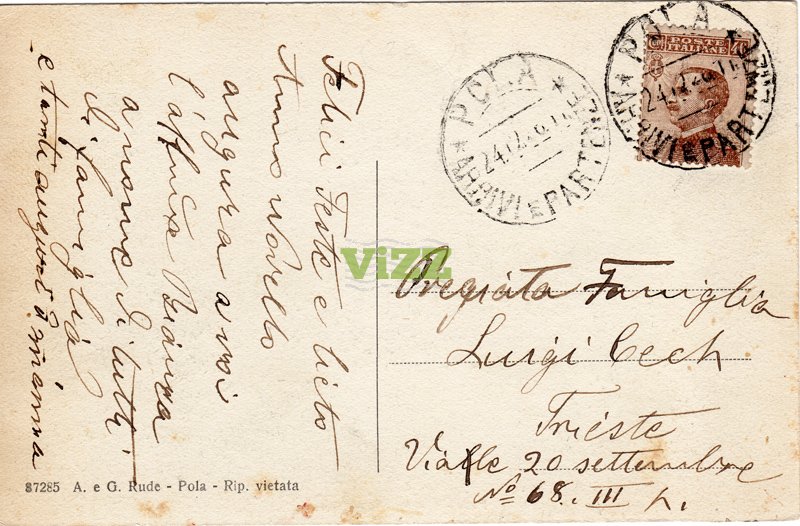 Felici Feste e lieto
Anno novello
augura a voi
l'affma Bianca
a nome di tutti
di famiglia
e tanti auguri a mamma
87285 A. e G. Rude - Pola - Rip. vietata
POLA
24.12.26.
ARRIVI E PARTENZE
POSTE ITALIANE
CENT. 40
POLA
24.12.26.
ARRIVI E PARTENZE
ViZZ
Pregiata Famiglia
Luigi Cech
Trieste
Viale 20 settembre
No 68. III